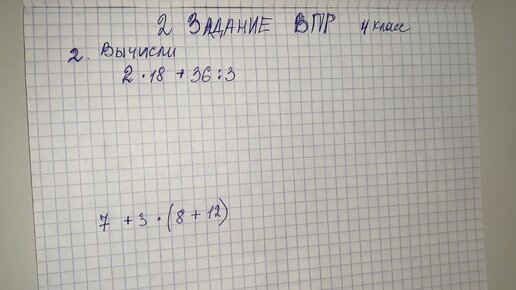 2 ЗАДАНИЕ ВПР 4 класс
2. Вычисли
2 · 18 + 36 : 3
7 + 3 · (8 + 12)